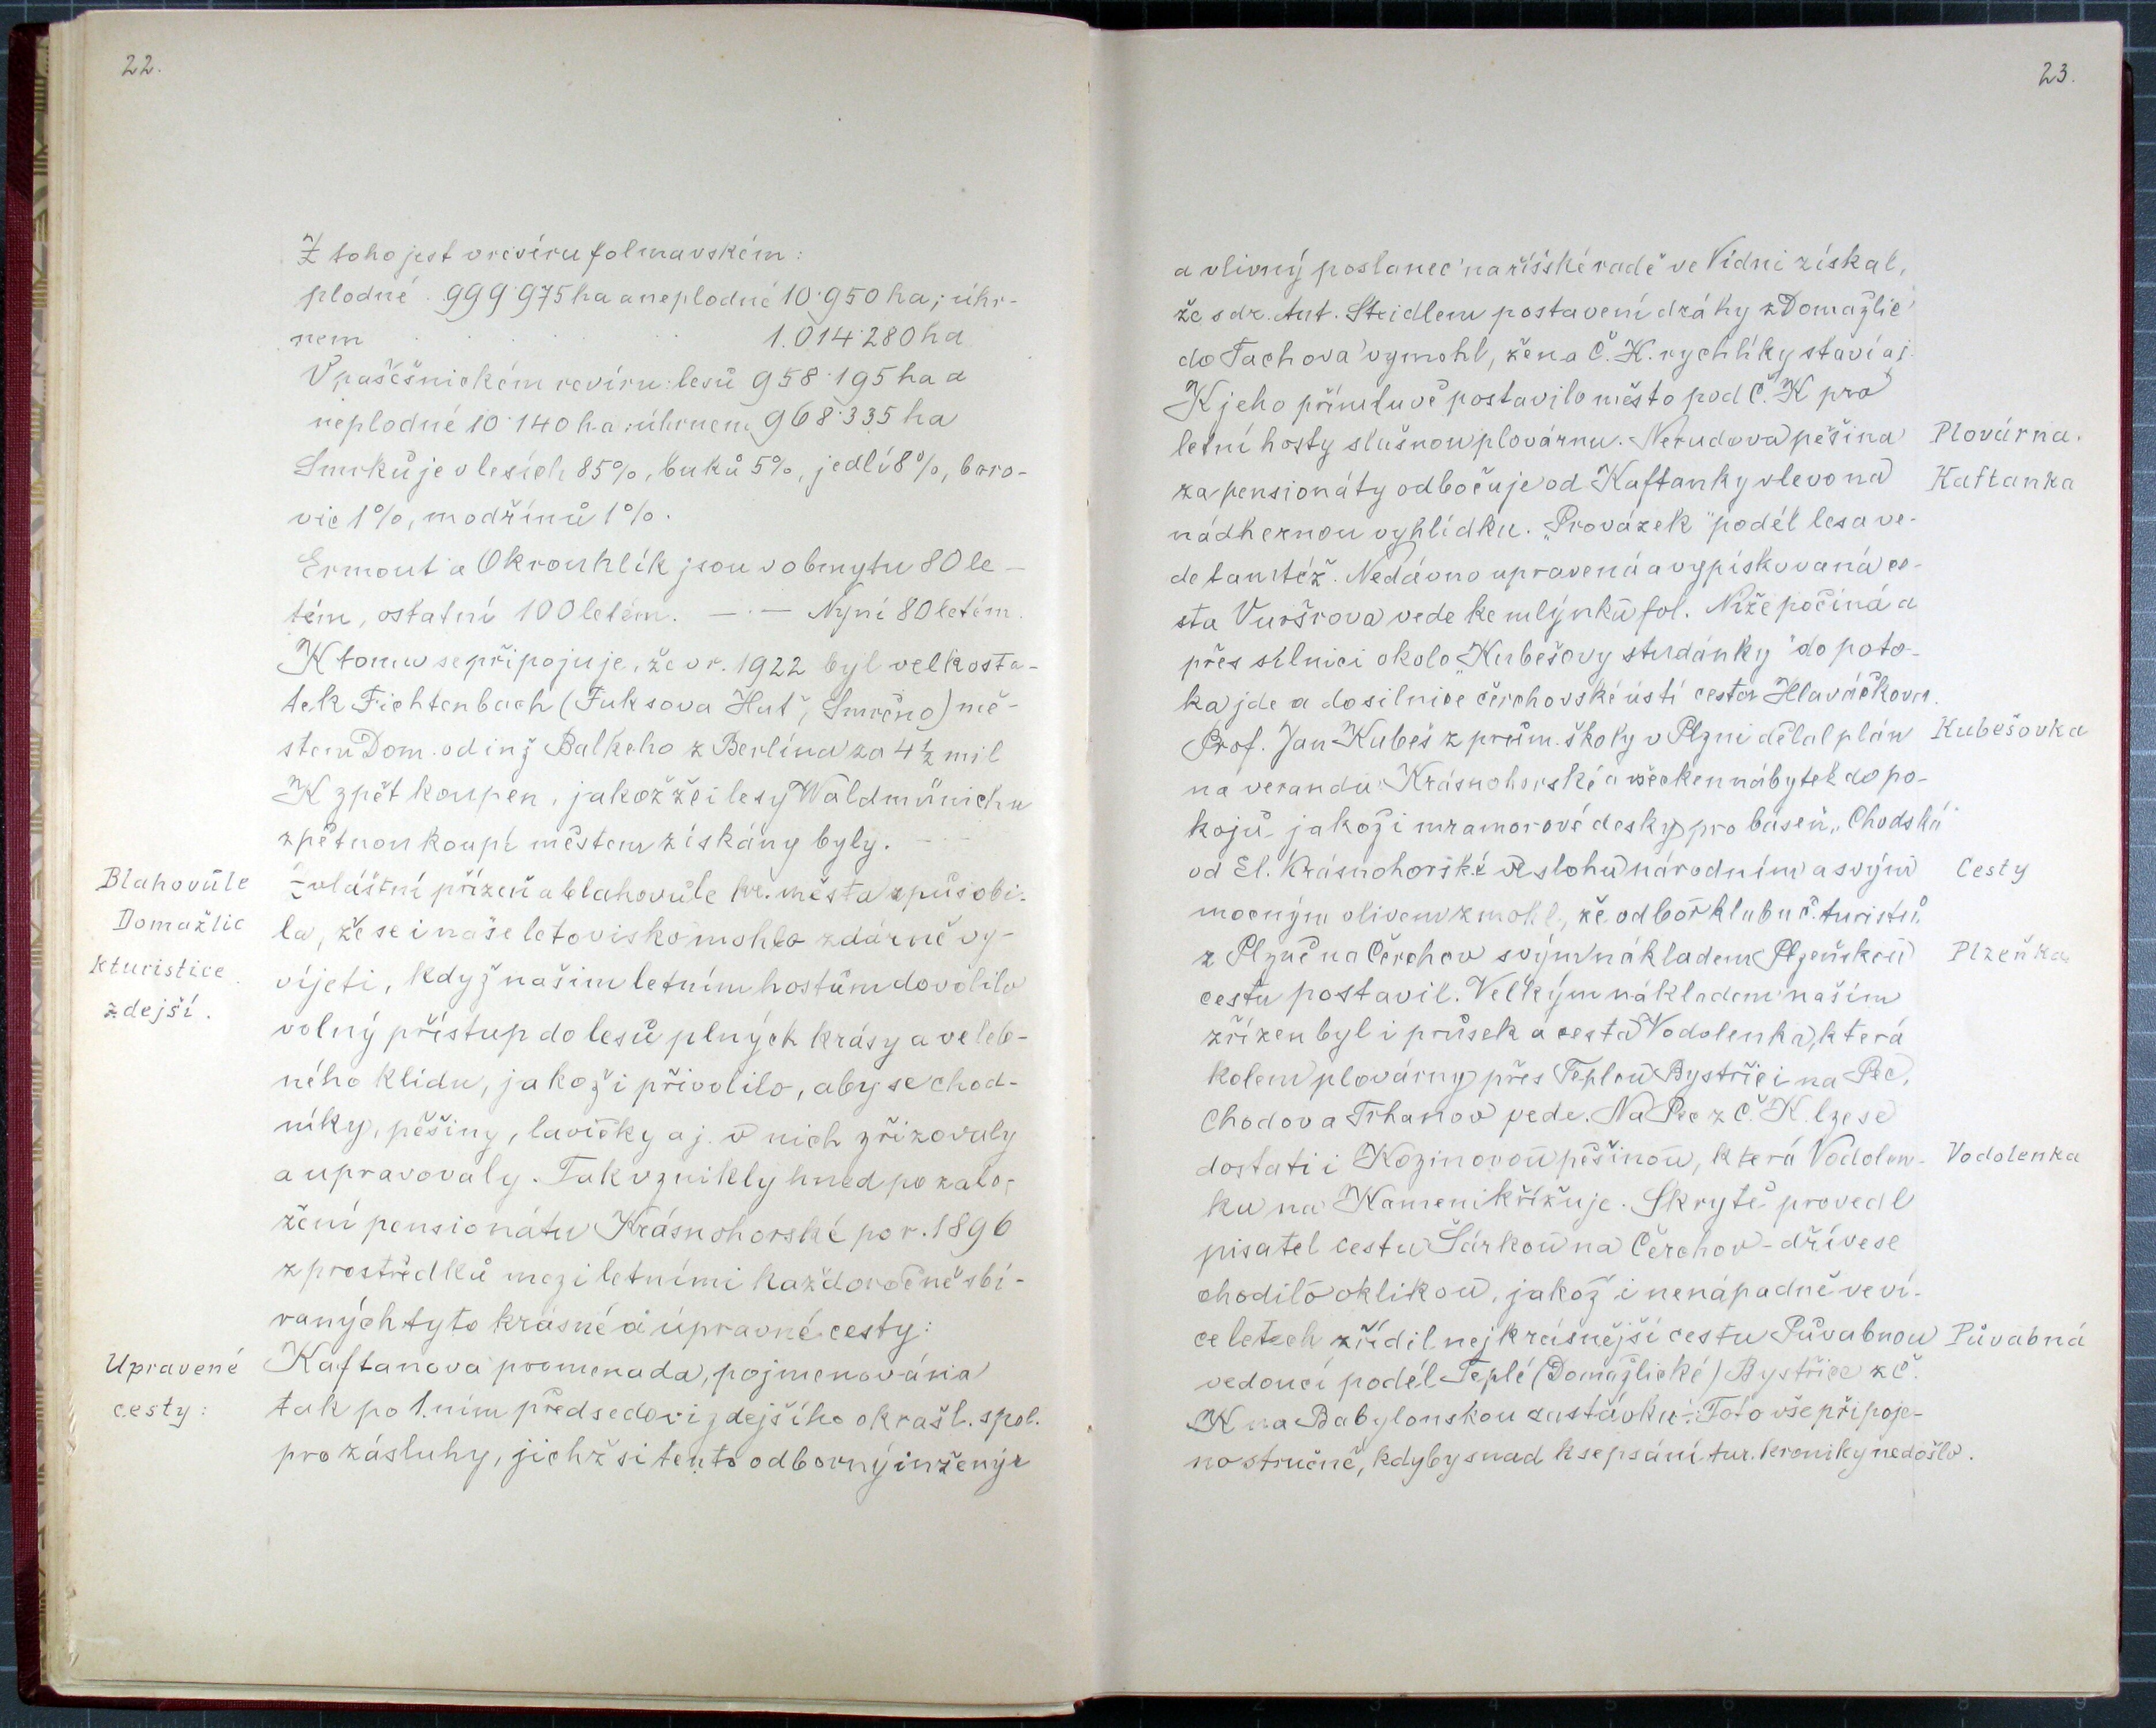 22.
Z toho jest v revíru folmavském:
plodné . 999·975 ha a neplodné 10·950 ha; úhr-
nem . . . . 1.014·280 ha
V pašešnickém revíru: lesů 958·195 ha a
neplodné 10·140 ha; úhrnem 968·335 ha
Smrků je v lesích 85%, buků 5%, jedlí 8%, boro-
vic 1%, modřínů 1%.
Ermout a Okrouhlík jsou v obmytu 80 le-
tém, ostatní 100 letém. —·— Nyní 80 letém.
K tomu se připojuje, že v r. 1922 byl velkosta-
tek Fichtenbach (Fuksova Huť, Smrčno) mě-
stem Dom. od inž Balkeho z Berlína za 4 ½ mil
K zpět koupen, jakož že i lesy Waldmünichu
zpětnou koupí městem získány byly. —
Blahovůle
Domažlic
k turistice
zdejší.
Zvláštní přízeň a blahovůle kr. města způsobi-
la, že se i naše letovisko mohlo zdárně vy-
víjeti, když našim letním hostům dovolilo
volný přístup do lesů plných krásy a veleb-
ného klidu, jakož i přivolilo, aby se chod-
níky, pěšiny, lavičky aj. v nich zřizovaly
a upravovaly. Tak vznikly hned po zalo-
žení pensionátu Krásnohorské po r. 1896
z prostředků mezi letními každoročně sbí-
raných tyto krásné a úpravné cesty:
Upravené
cesty:
Kaftanova promenada, pojmenována
tak po 1. ním předsedovi zdejšího okrašl. spol.
pro zásluhy, jichž si tento odborný inženýr
23.
a vlivný poslanec na říšské radě ve Vídni získal,
že s dr. Ant. Steidlem postavení dráhy z Domažlic
do Tachova vymohl, že na Č. K. rychlíky staví aj.
K jeho přímluvě postavilo město pod Č. K pro
letní hosty slušnou plovárnu. Nerudova pěšina
Plovárna.
za pensionáty odbočuje od Kaftanky vlevo na
Kaftanka
nádhernou vyhlídku. „Provázek" podél lesa ve-
de tamtéž. Nedávno upravená a vypískovaná ce-
sta Vuršrova vede ke mlýnku fol. Níže počíná a
přes silnici okolo „Kubešovy studánky" do poto-
ka jde a do silnice čerchovské ústí cesta Hlaváčkova.
Prof. Jan Kubeš z prům. školy v Plzni dělal plán
Kubešovka
na verandu Krásnohorské a všecken nábytek do po-
kojů jakož i mramorové desky pro báseň „Chodská"
od El. Krásnohorské ve slohu národním a svým
Cesty
mocným vlivem zmohl, že odbor klubu č. turistů
z Plzně na Čerchov svým nákladem Plzeňskou
Plzeňka
cestu postavil. Velkým nákladem naším
zřízen byl i průsek a cesta Vodolenka, která
kolem plovárny přes Teplou Bystřici na Pec,
Chodov a Trhanov vede. Na Pec z Č. K. lze se
dostati i Kozinovou pěšinou, která Vodolen-
Vodolenka
ku na Kameni křižuje. Skrytě provedl
pisatel cestu Šárkou na Čerchov - dříve se
chodilo oklikou, jakož i nenápadně ve ví-
ce letech zřídil nejkrásnější cestu Půvabnou
Půvabná
vedoucí podél Teplé (Domažlické) Bystřice z Č.
K na Babylonskou zastávku. Toto vše připoje-
no stručně, kdyby snad k sepsání tur. kroniky nedošlo.